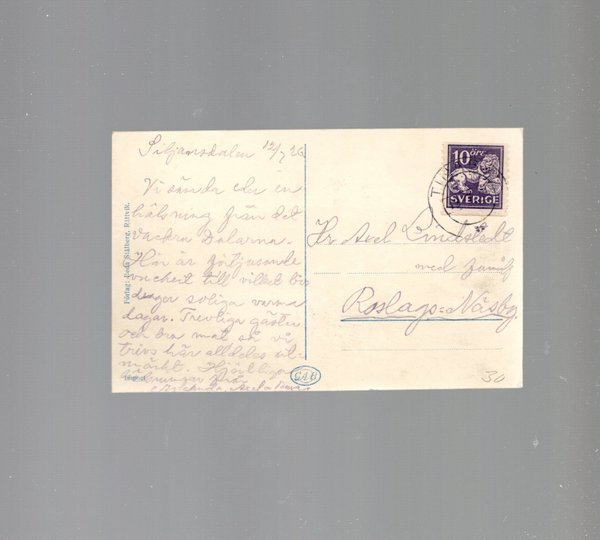 Siljansdalen 12/7 26
Vi sända eder en
hälsning från det
vackra Dalarna.
Här är förtjusande
till
soliga varma
dagar. Trevliga gäster
och bra mat så vi
trivs här alldeles ut-
märkt. Hjärtliga
hälsningar från
Förlag: Stålberg, Rättvik.
10 ÖRE
SVERIGE
Hr Axel Lindstedt
med familj
Roslags=Näsby
30